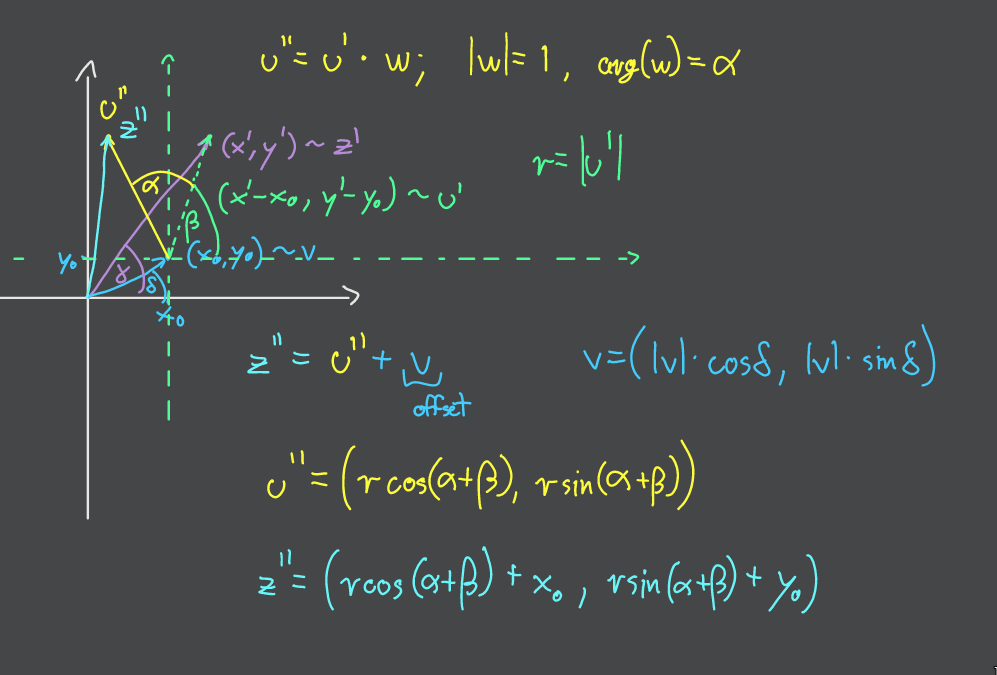 υ'' = υ' · w; |w| = 1, arg(w) = α
υ''
z''
(x', y') ~ z'
r = |υ'|
α
(x'-x₀, y'-y₀) ~ υ'
β
y₀
(x₀, y₀) ~ v
γ
δ
x₀
z'' = υ'' + v
offset
v = (|v| · cosδ, |v| · sinδ)
υ'' = (r cos(α+β), r sin(α+β))
z'' = (r cos(α+β) + x₀, r sin(α+β) + y₀)